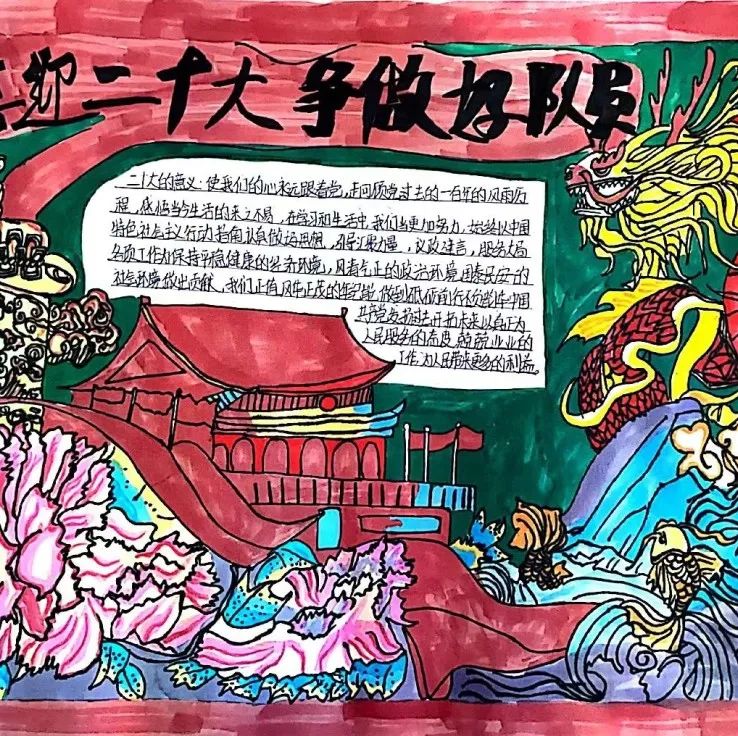 喜迎二十大 争做好队员
二十大的意义：使我们的心永远跟着党，走回顾党过去的一百年的风雨历
程，感悟当今生活的来之不易，在学习和生活中，我们当更加努力，始终以中国
特色社会主义行动指南认真做运思想，引导汇聚力量，议政建言，服务大局
各项工作为保持平稳健康的经济环境，风清气正的政治环境国泰民安的
社会环境做出贡献，我们正值风华正茂的年纪
中国
共产党
未来以自正为
人民服务的态度，兢兢业业的
工作，为人民带来更多的利益。